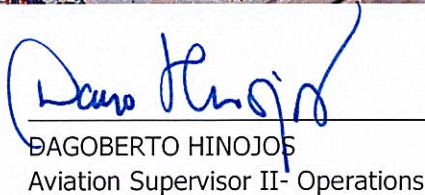 DAGOBERTO HINOJOS
Aviation Supervisor II- Operations